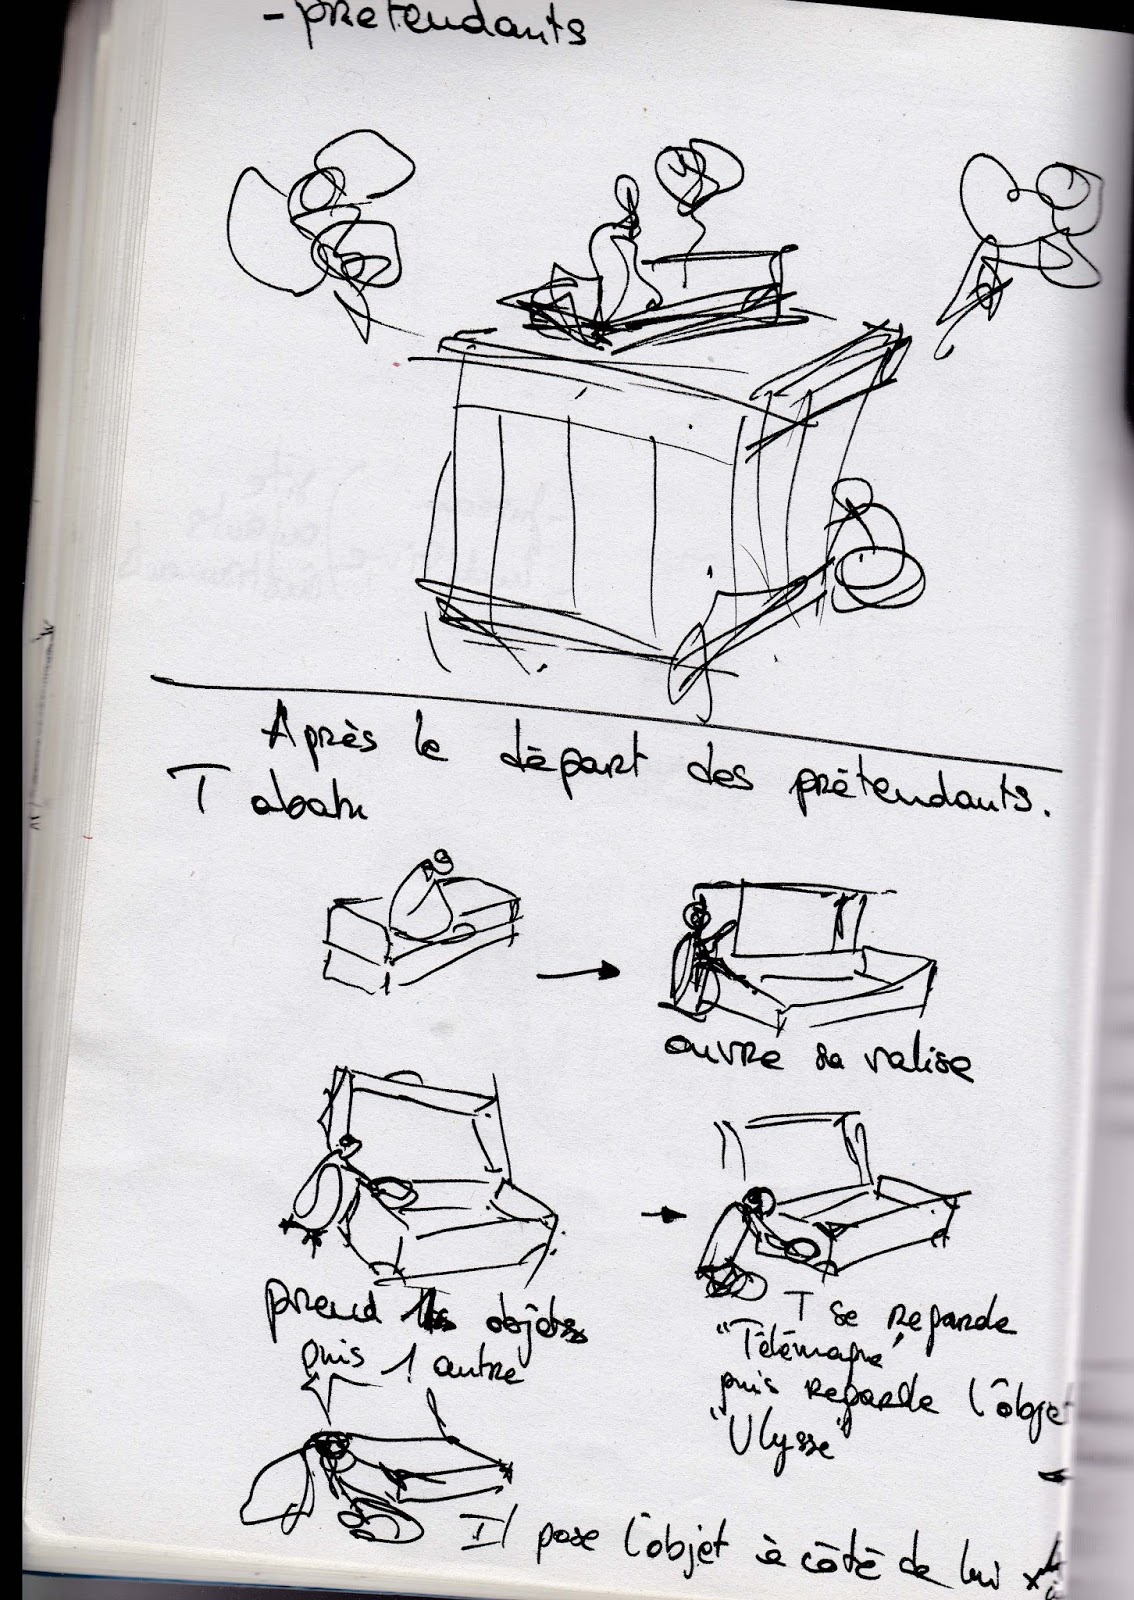 - prétendants
Après le départ des prétendants.
T abattu
ouvre sa valise
prend 1 objets
puis 1 autre
T se regarde
"Télémaque"
puis regarde l'objet
"Ulysse"
Il pose l'objet à côté de lui x